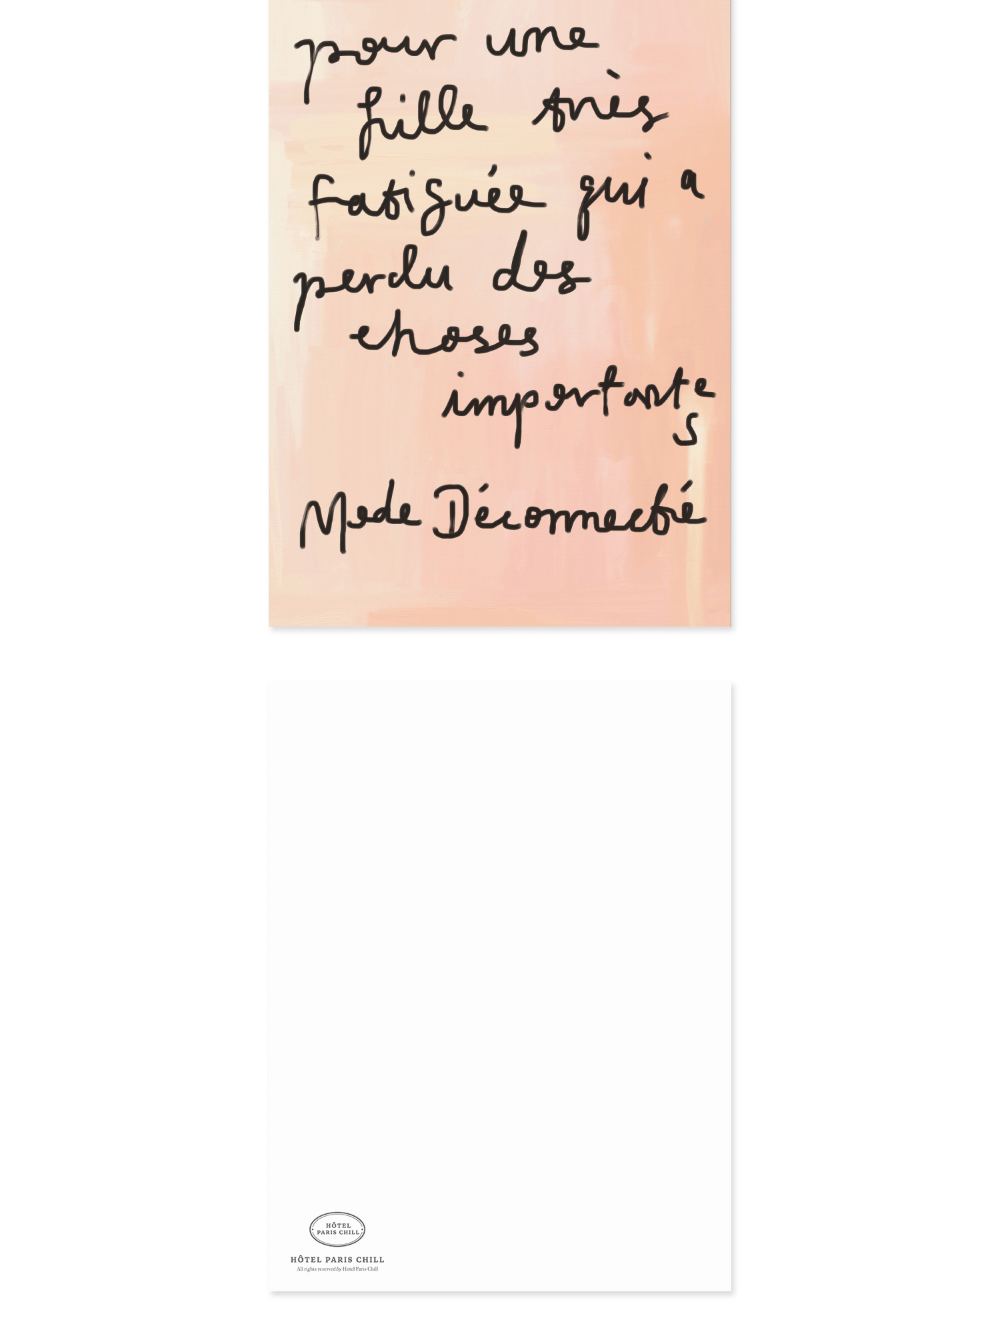 pour une
fille très
fatiguée qui a
perdu des
choses
importante
s
Mode Déconnecté
HÔTEL
PARIS CHILL
HÔTEL PARIS CHILL
All rights reserved by Hotel Paris Chill